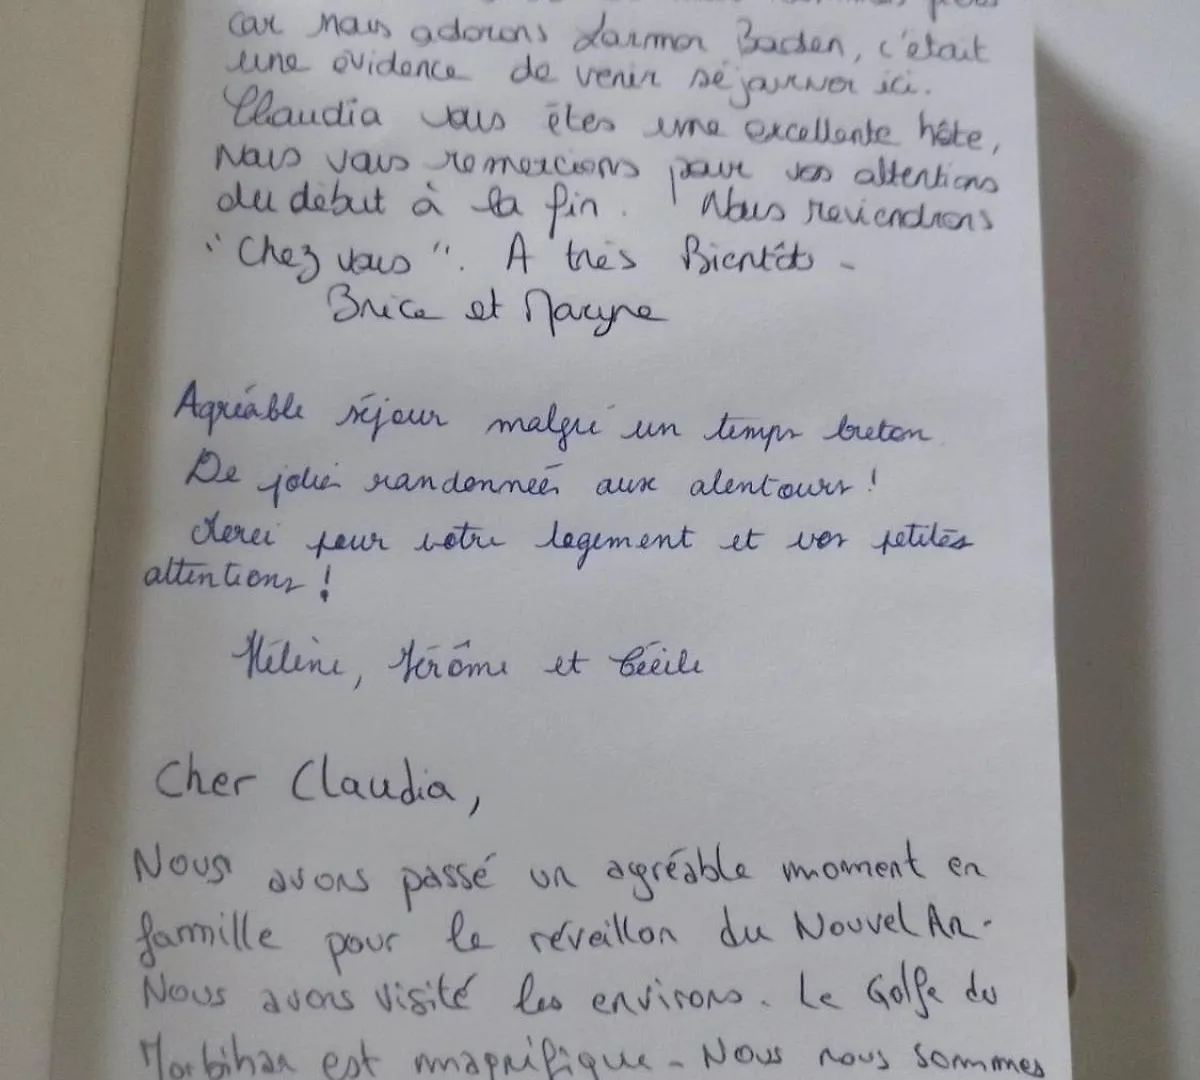 car nous adorons Larmor Baden, c'était
une évidence de venir séjourner ici.
Claudia vous êtes une excellente hôte,
Nous vous remercions pour vos attentions
du début à la fin. Nous reviendrons
"Chez vous". A très Bientôt -
Brice et Maryne
Agréable séjour malgré un temps breton
De jolies randonnées aux alentours !
Merci pour votre logement et vos petites
attentions !
Hélène, Jérôme et Cécile
Cher Claudia,
Nous avons passé un agréable moment en
famille pour le réveillon du Nouvel An.
Nous avons visité les environs. Le Golfe du
Morbihan est magnifique - Nous nous sommes